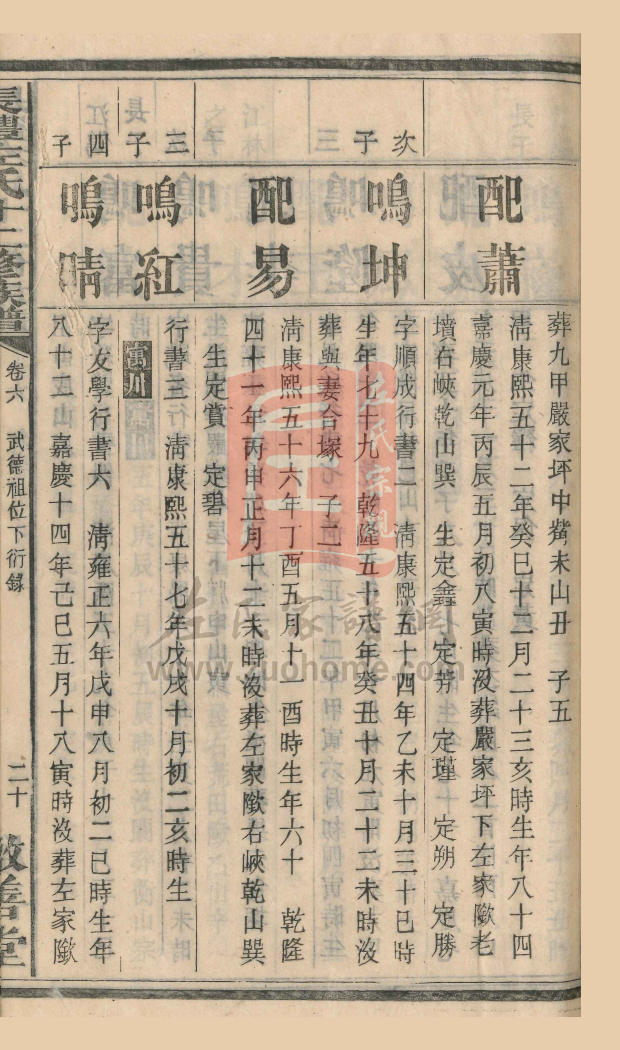 葬九甲嚴家坪中觜未山丑　子五
配蕭
清康熙五十二年癸巳十二月二十三亥時生年八十四
嘉慶元年丙辰五月初八寅時沒葬嚴家坪下左家𡑞老
墳右峽乾山巽　生定鑫　定芳　定瑾　定朔　定勝
次子
鳴坤
字順成行書二　清康熙五十四年乙未十月三十巳時
生年七十九　乾隆五十八年癸丑十月二十二未時沒
葬與妻合塚　子二
配易
清康熙五十六年丁酉五月十一酉時生年六十　乾隆
四十一年丙申正月十二未時沒葬左家𡑞右峽乾山巽
生定賞　定碧
三子
鳴紅
行書三　清康熙五十七年戊戌十月初二亥時生
寓川
四子
鳴晴
字友學行書六　清雍正六年戊申八月初二巳時生年
八十二　嘉慶十四年己巳五月十八寅時沒葬左家𡑞
長灃左氏十二修族譜
卷六　武德祖位下衍錄
二十
敬善堂
左氏宗親
左氏家譜網
www.zuohome.com